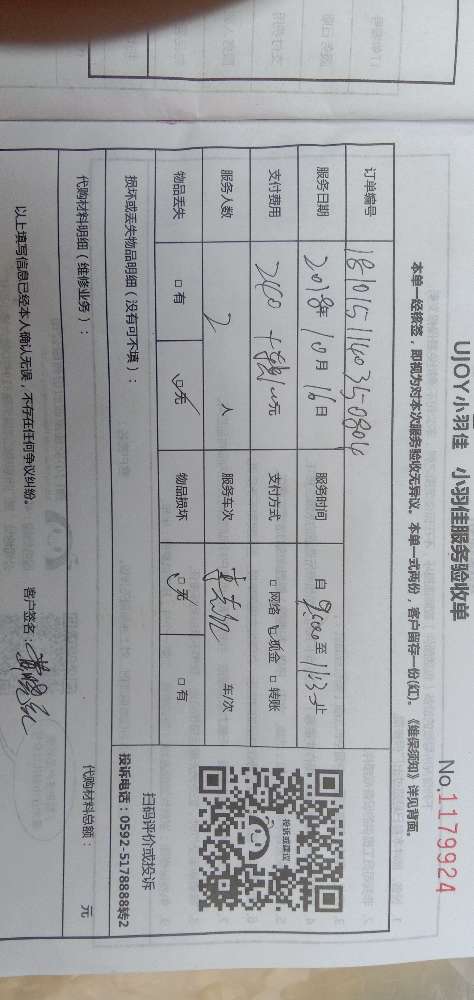 UJOY小羽佳 小羽佳服务验收单
No.1179924
本单一经核签，即视为对本次服务验收无异议。本单一式两份，客户留存一份(红)。《维保须知》详见背面。
订单编号 1810151140350804
服务日期 2018年10月16日 服务时间 自 9:00 至 11:3 止
支付费用 240 元 支付方式 □ 网络 □ 现金 □ 转账
服务人数 2 人 服务车次 车/次
物品丢失 □ 有 □ 无 物品损坏 □ 无 □ 有
投诉或建议
扫码评价或投诉
投诉电话：0592-5178888转2
损坏或丢失物品明细（没有可不填）：
代购材料明细（维修业务）： 代购材料总额： 元
以上填写信息已经本人确认无误，不存在任何争议纠纷。 客户签名：